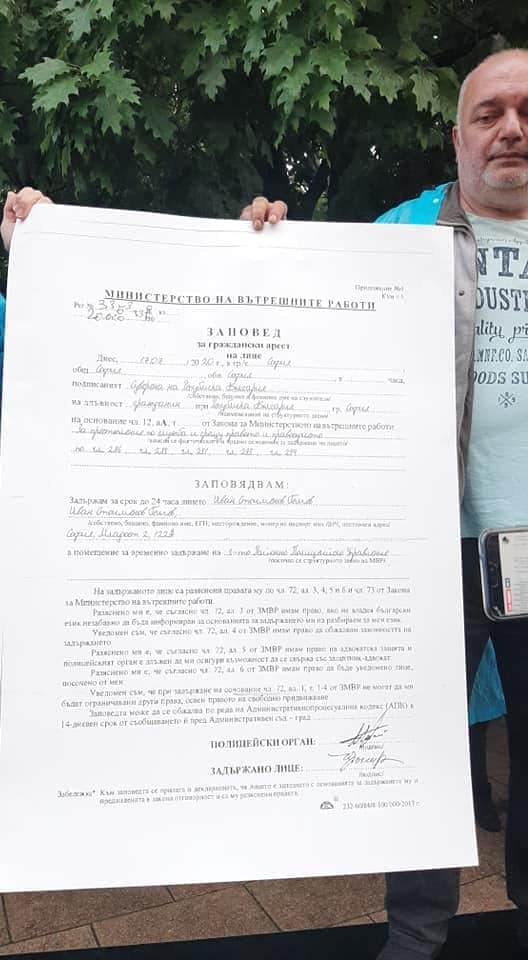 Приложение №1
МИНИСТЕРСТВО НА ВЪТРЕШНИТЕ РАБОТИ
Рег. №
ЗАПОВЕД
за граждански арест
на лице
Днес, 17.07 2020 г., в гр./с. София
общ. София обл. София, т. часа,
подписаният Суверена на Република България
на длъжност гражданин при Република България гр. София
на основание чл. 12, ал. т. от Закона за Министерството на вътрешните работи
по чл. 286, чл. 288, чл.
ЗАПОВЯДВАМ:
Задържам за срок до 24 часа лицето Иван
Иван
/собствено, бащино, фамилно име, ЕГН, месторождение, номер на паспорт или ЛНЧ, постоянен адрес/
София, Младост 2,
в помещение за временно задържане на Районно Полицейско Управление
/посочва се структурното звено на МВР/
На задържаното лице са разяснени правата му по чл. 72, ал. 3, 4, 5 и 6 и чл. 73 от Закона
за Министерството на вътрешните работи.
Разяснено ми е, че съгласно чл. 72, ал. 3 от ЗМВР имам право, ако не владея български
език незабавно да бъда информиран за основанията за задържането ми на разбираем за мен език.
Уведомен съм, че съгласно чл. 72, ал. 4 от ЗМВР имам право да обжалвам законността на
задържането.
Разяснено ми е, че съгласно чл. 72, ал. 5 от ЗМВР имам право на адвокатска защита и
полицейският орган е длъжен да ми осигури възможност да се свържа със защитник-адвокат.
Разяснено ми е, че съгласно чл. 72, ал. 6 от ЗМВР имам право да бъде уведомено лице,
посочено от мен.
Уведомен съм, че при задържане на основание чл. 72, ал. 1, т. 1-4 от ЗМВР не могат да ми
бъдат ограничавани други права, освен правото на свободно придвижване.
Заповедта може да се обжалва по реда на Административнопроцесуалния кодекс (АПК) в
14-дневен срок от съобщаването ѝ пред Административен съд – град
ПОЛИЦЕЙСКИ ОРГАН:
/подпис/
ЗАДЪРЖАНО ЛИЦЕ:
/подпис/
Забележка* Към заповедта се прилага и декларацията, че лицето е запознато с основанията за задържането му и
предвидената в закона отговорност и са му разяснени правата.
NTA
DUSTRI
ality pri
MNF.CO. SA
OODS SUP